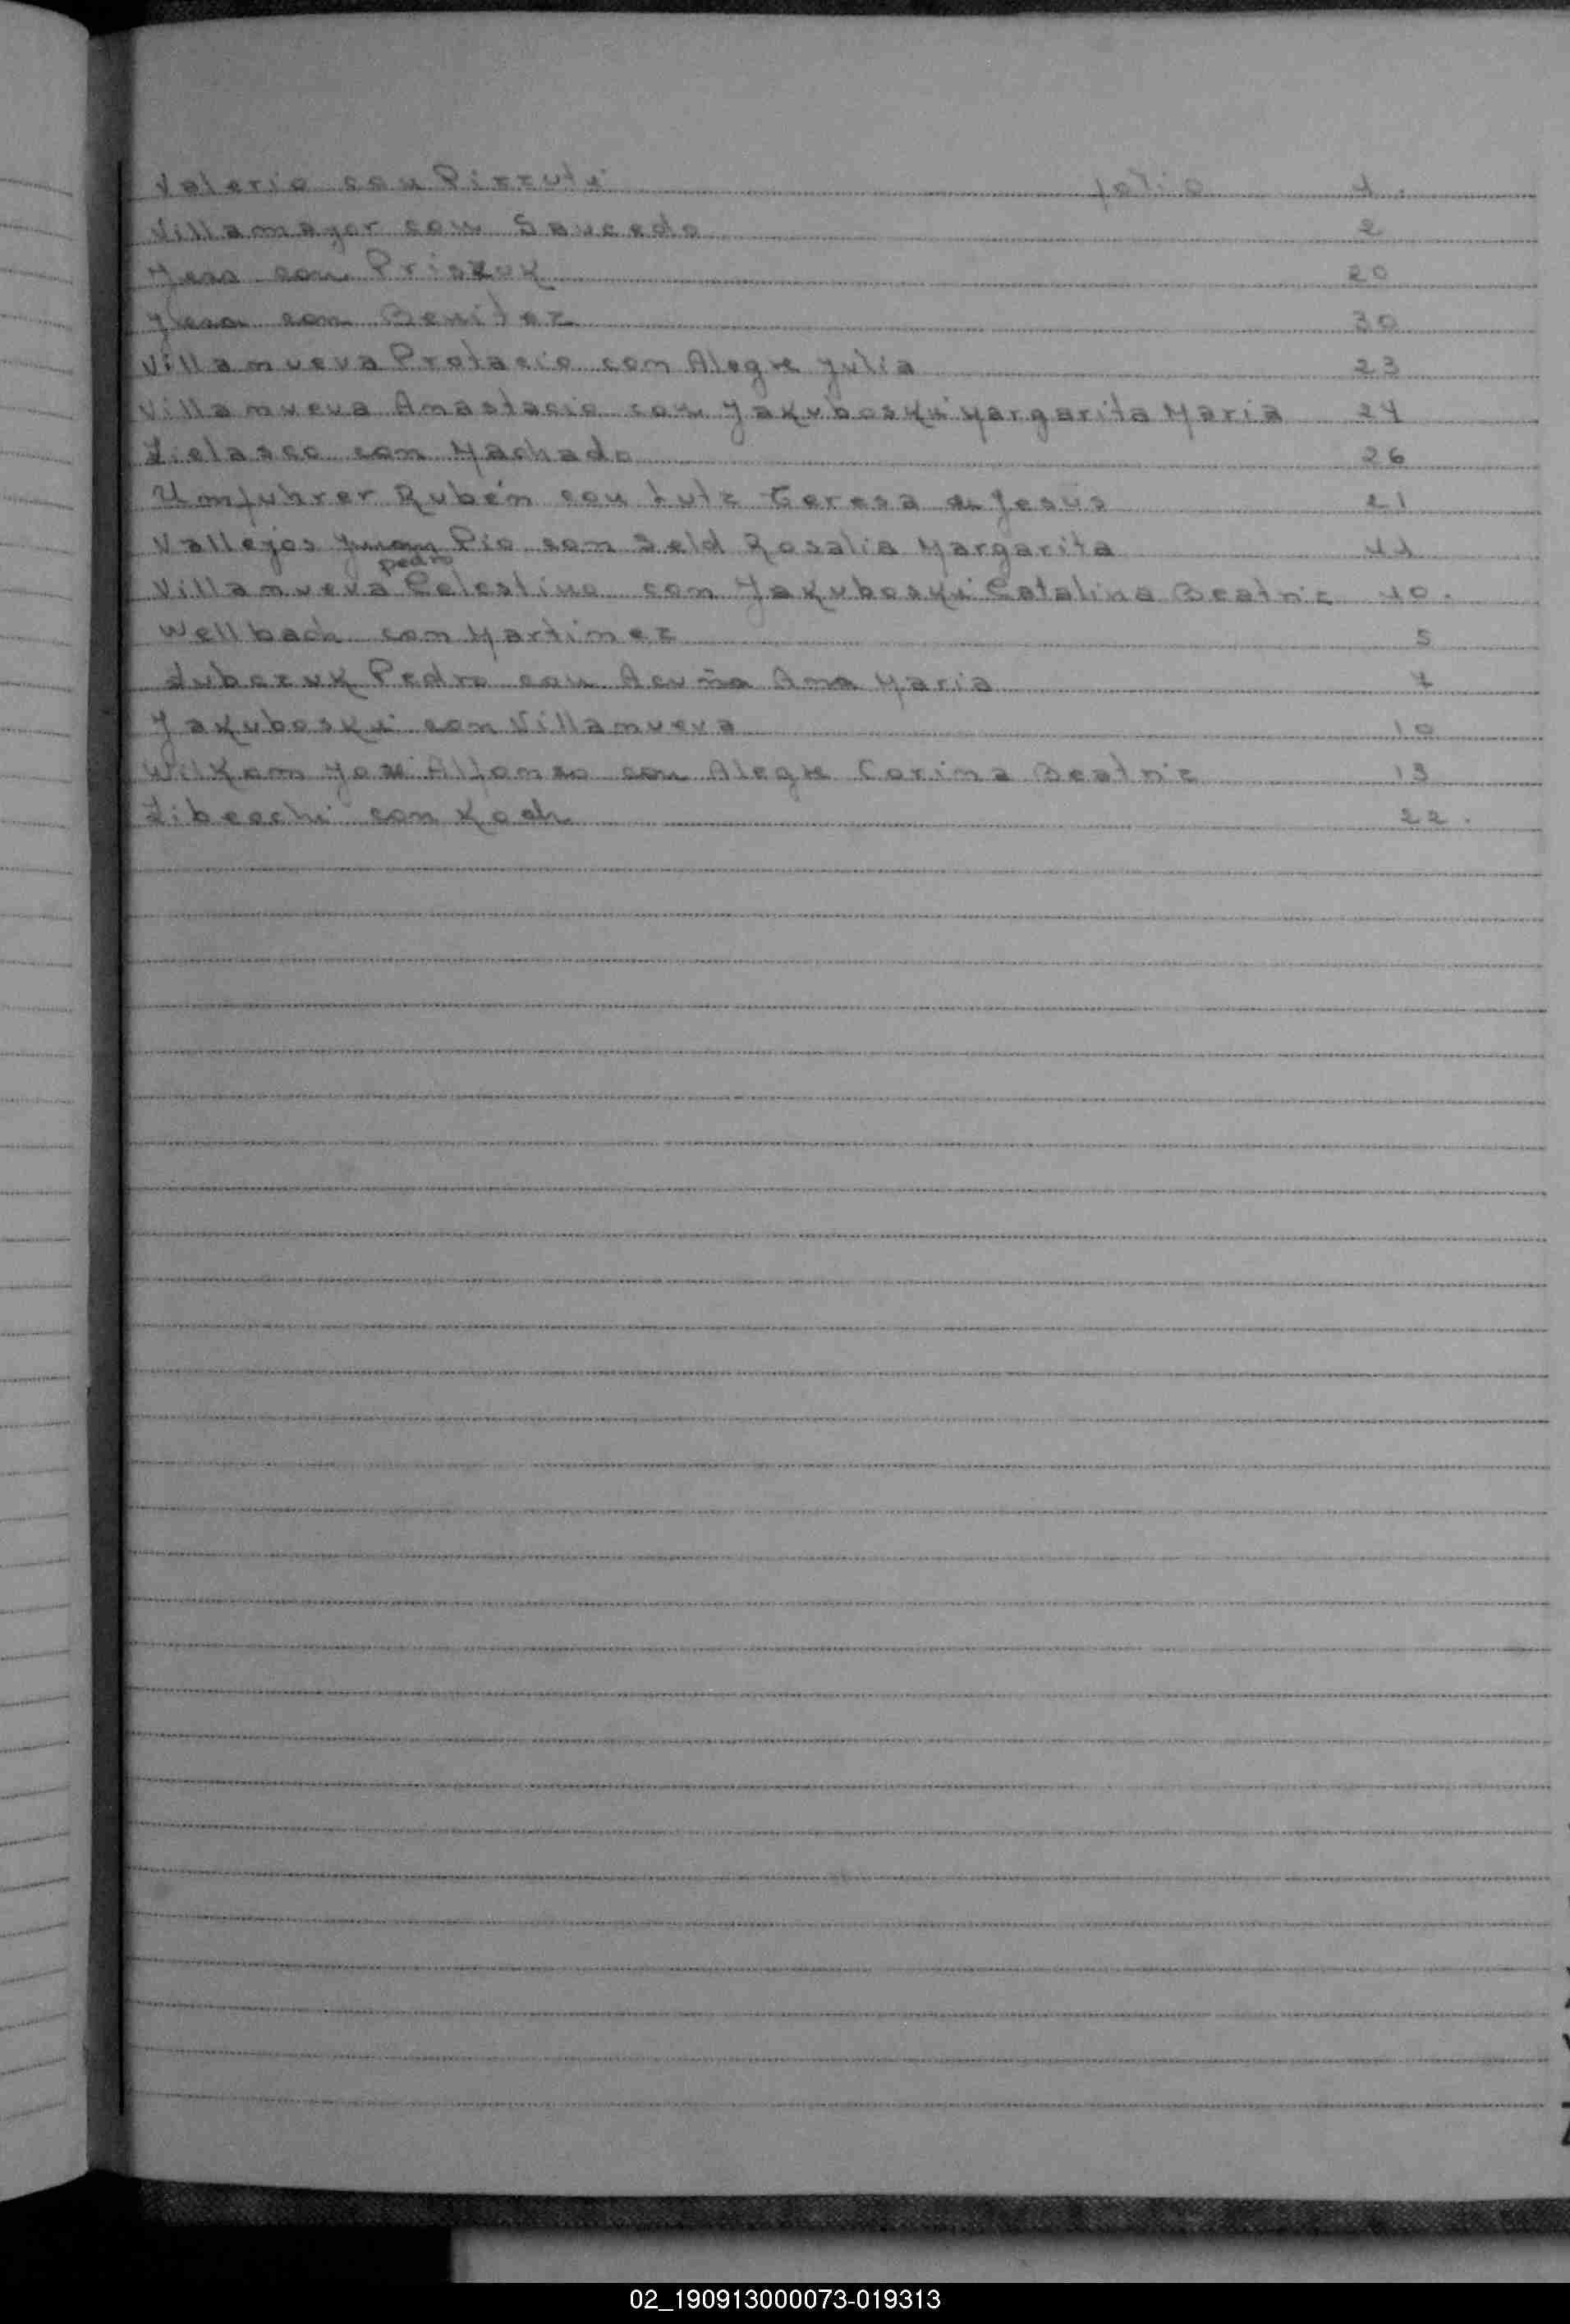 Valerio con Pizzuti folio 4.
Villamayor con Saucedo 2
con Priszuk 20
con Benitez 30
Villanueva Protacio con Alegre Julia 23
Villanueva Anastacio con Jakuboski Margarita Maria 24
Zielasco con Machado 26
Umfuhrer Rubén con Lutz Teresa de Jesus 21
Vallejos Juan Pio con Seld Rosalia Margarita 41
pedro
Villanueva Celestino con Jakuboski Catalina Beatriz 40.
Wellbach con Martinez 5
Zubczuk Pedro con Acuña Ana Maria 7
Jakuboski con Villanueva 10
Wilkem José Alfonso con Alegre Corina Beatriz 13
Zibecchi con Koch 22.
02_190913000073-019313